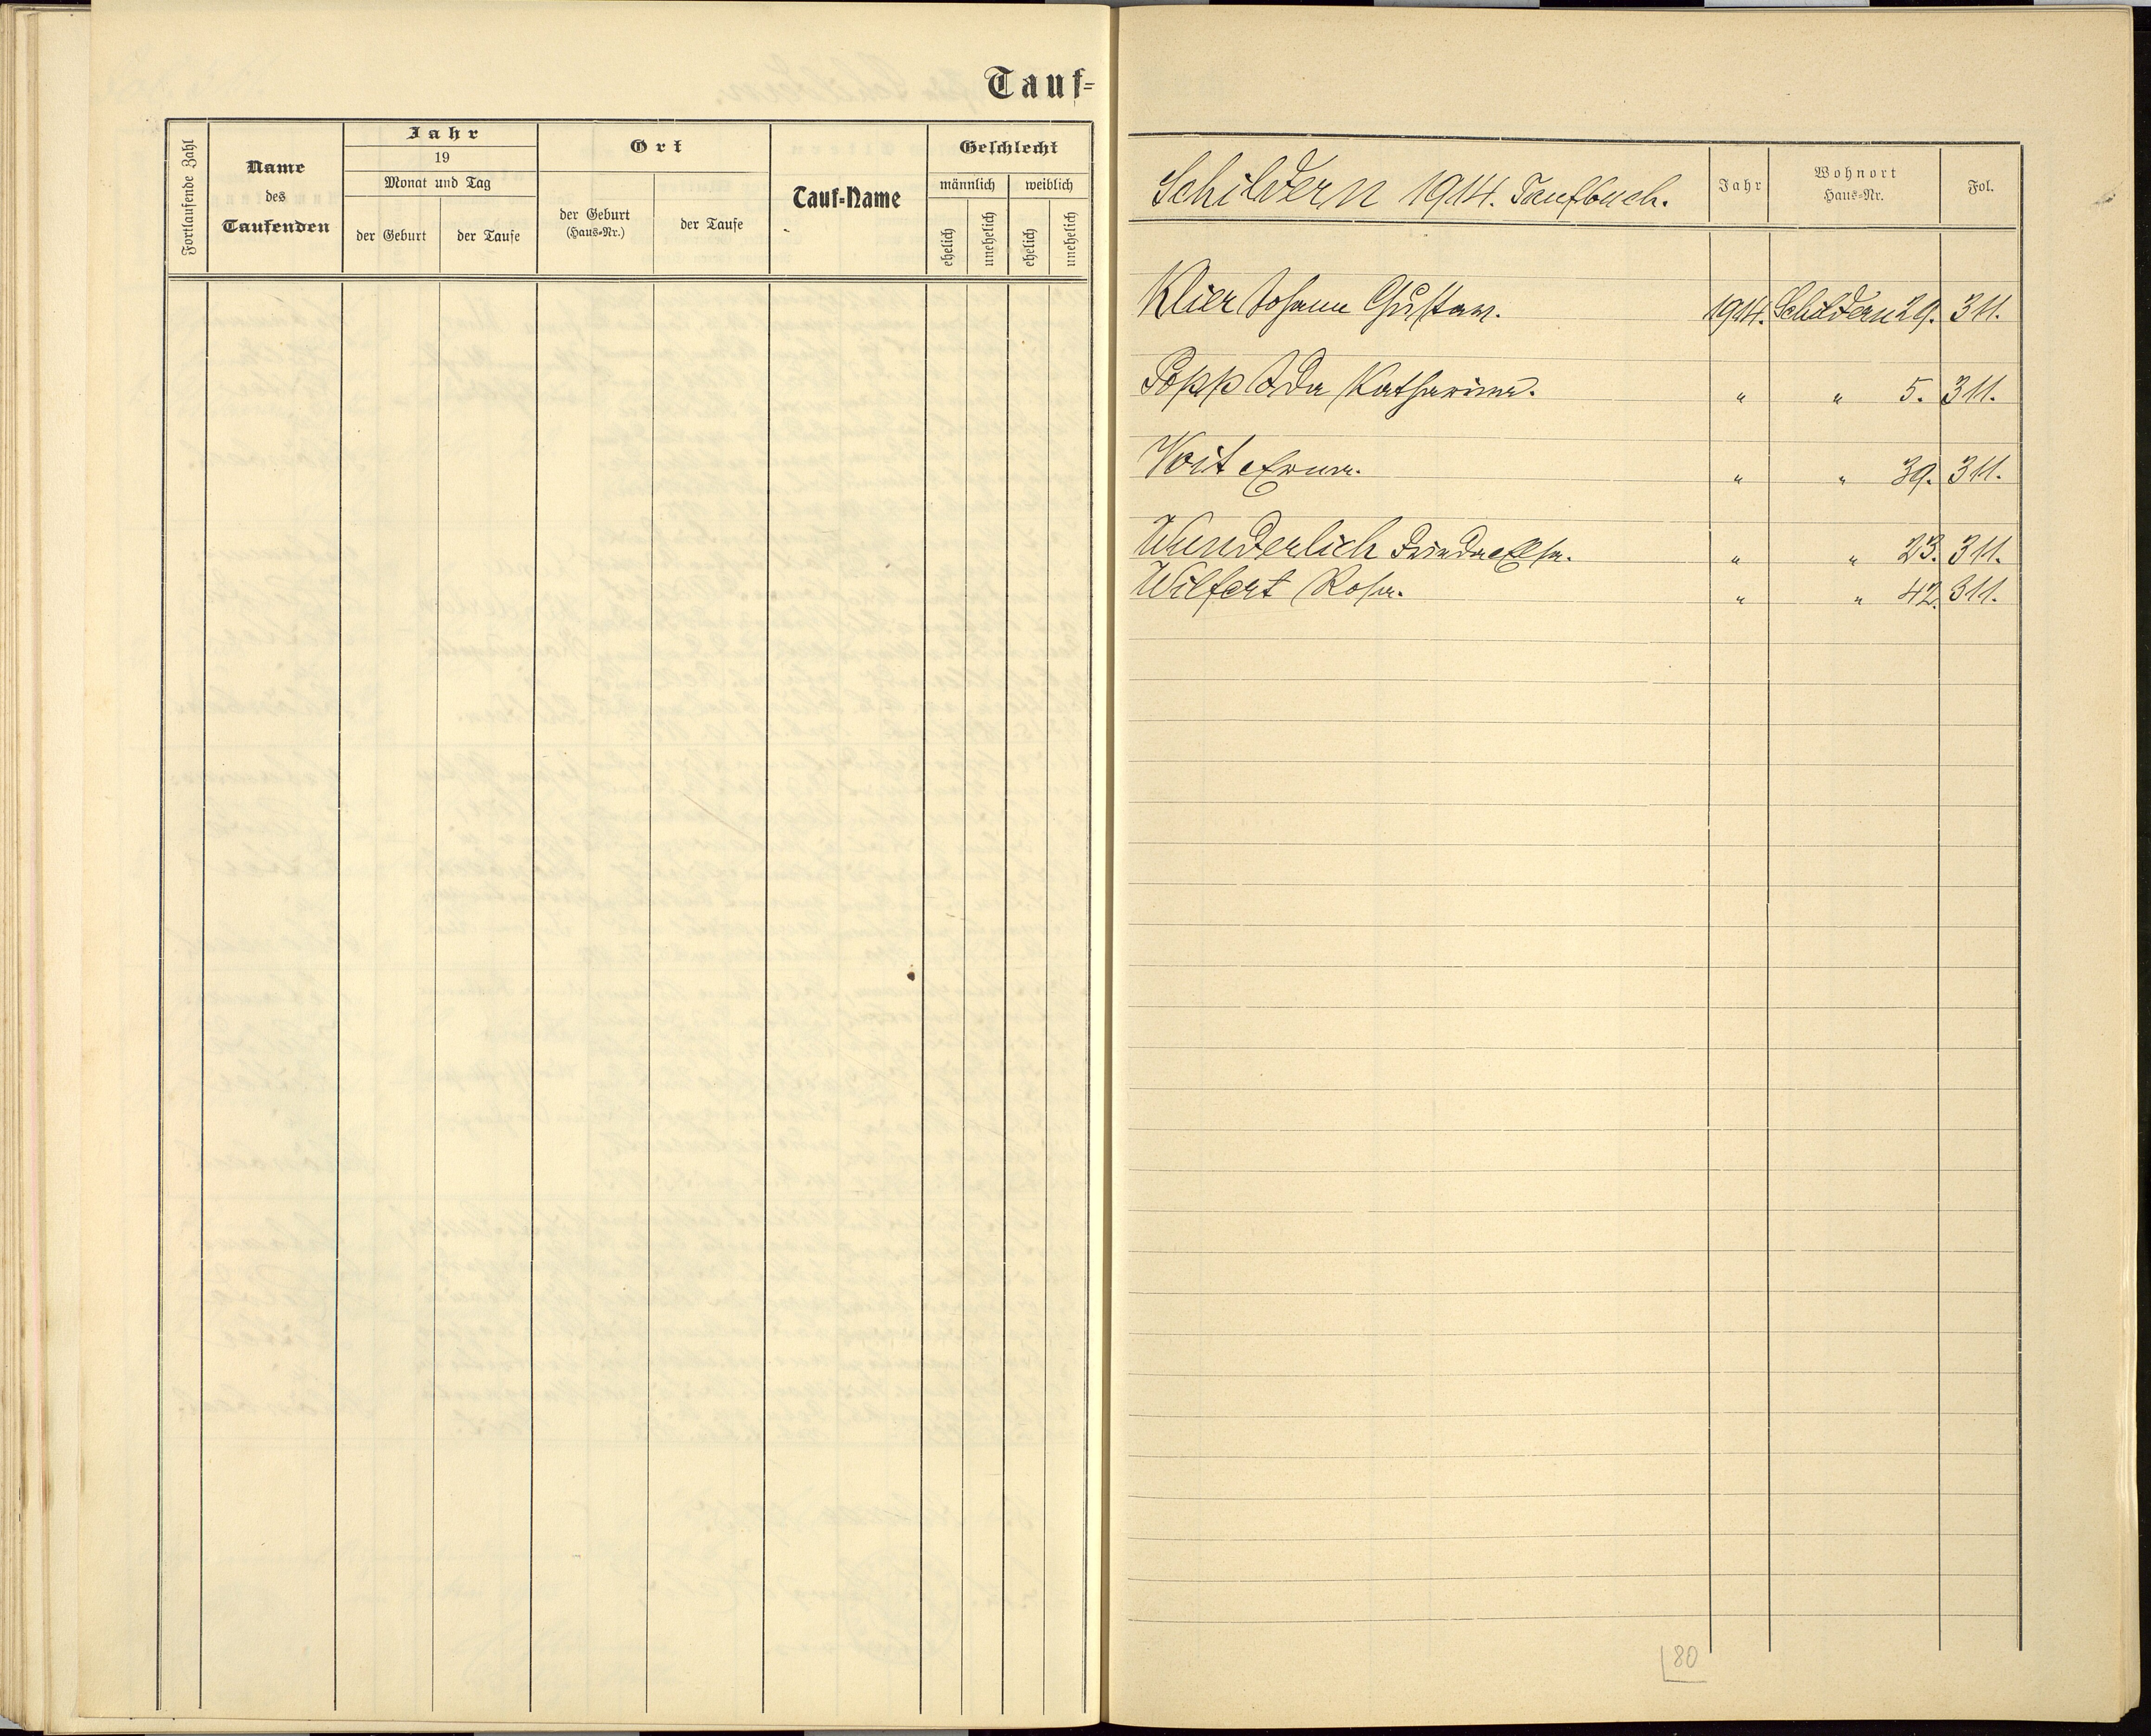 Tauf=
Fortlaufende Zahl
Name
des
Taufenden
Jahr
19
Monat und Tag
der Geburt
der Taufe
Ort
der Geburt
(Haus=Nr.)
der Taufe
Tauf=Name
Geschlecht
männlich
weiblich
ehelich
unehelich
ehelich
unehelich
Schildern 1914. Taufbuch.
Jahr
Wohnort
Haus=Nr.
Fol.
Klier Johann Gustav. 1914. Schildern 29. 311.
Popp Ida Katharina. " " 5. 311.
Voit Erna. " " 39. 311.
Wunderlich Frieda Elsa. " " 23. 311.
Wilfert Rosa. " " 42. 311.
80